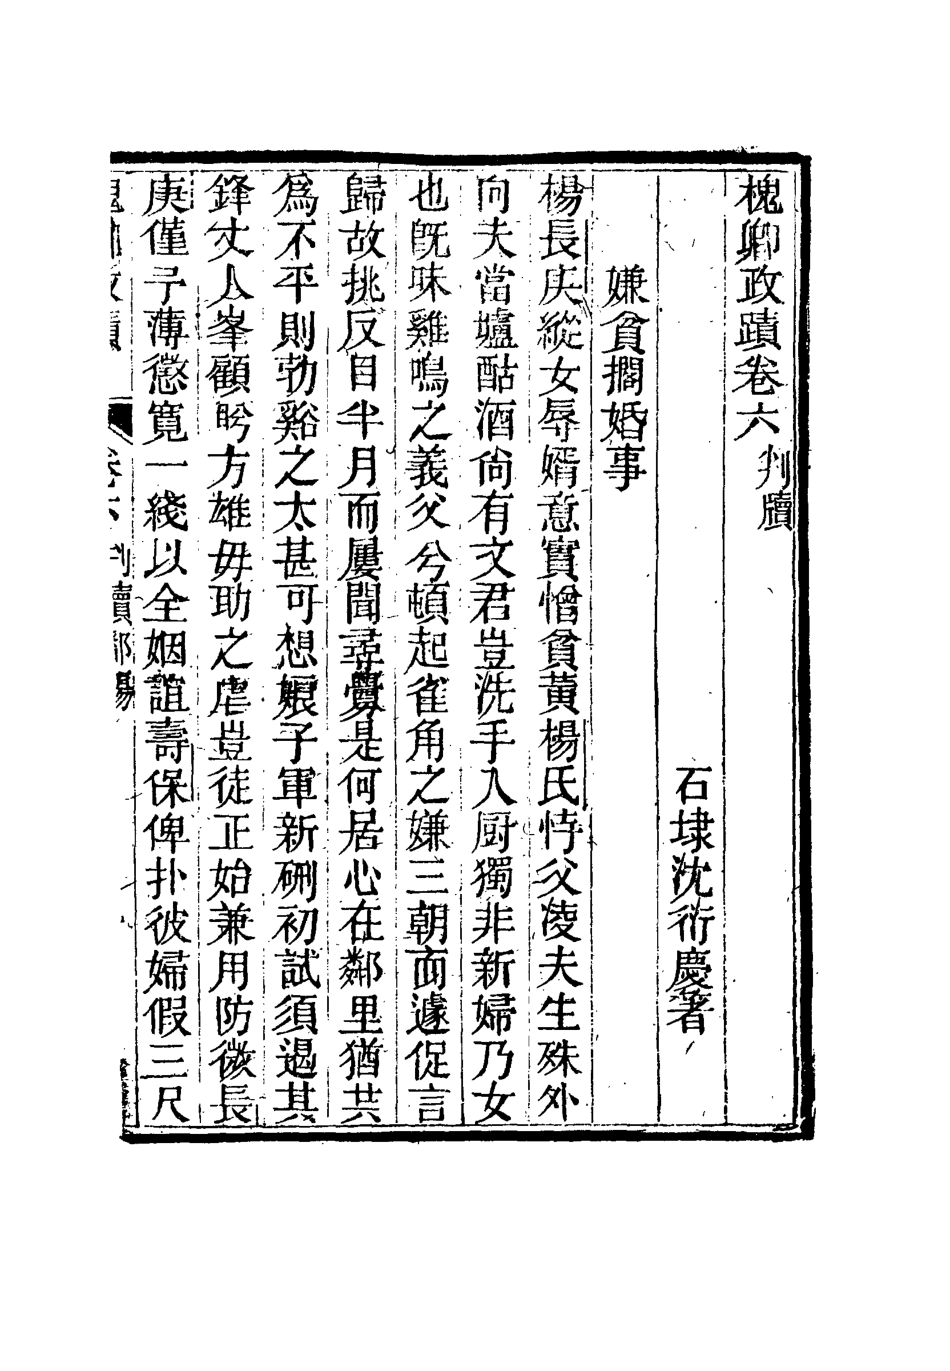 槐卿政蹟卷六判牘
石埭沈衍慶著
嫌貧擱婚事
楊長庚縱女辱婿意實憎貧黃楊氏恃父凌夫生殊外
向夫當壚酤酒尙有文君豈洗手入厨獨非新婦乃女
也旣昧雞鳴之義父兮頓起雀角之嫌三朝而遽促言
歸故挑反目半月而屢聞尋釁是何居心在鄰里猶共
爲不平則勃谿之太甚可想娘子軍新硎初試須遏其
鋒丈人峯顧盻方雄毋助之虐豈徒正始兼用防微長
庚僅予薄懲寬一綫以全姻誼壽保俾扑彼婦假三尺
槐卿政蹟 卷六 判牘鄱陽